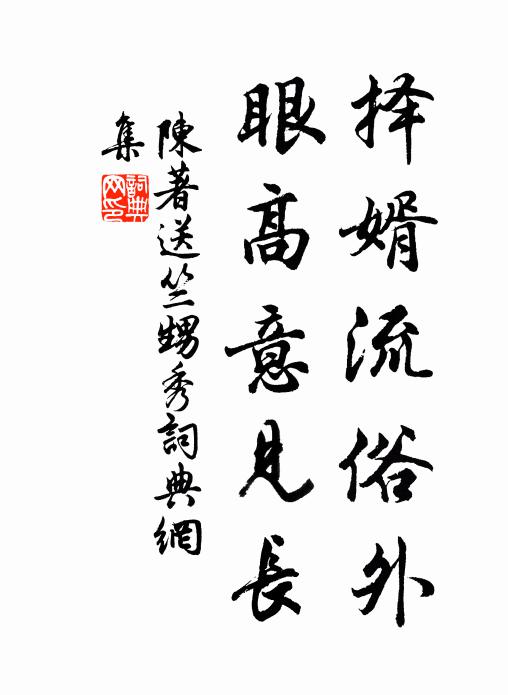 择婿流俗外
眼高意见長
陳著送竺甥秀詞典網
集
詞典
网印